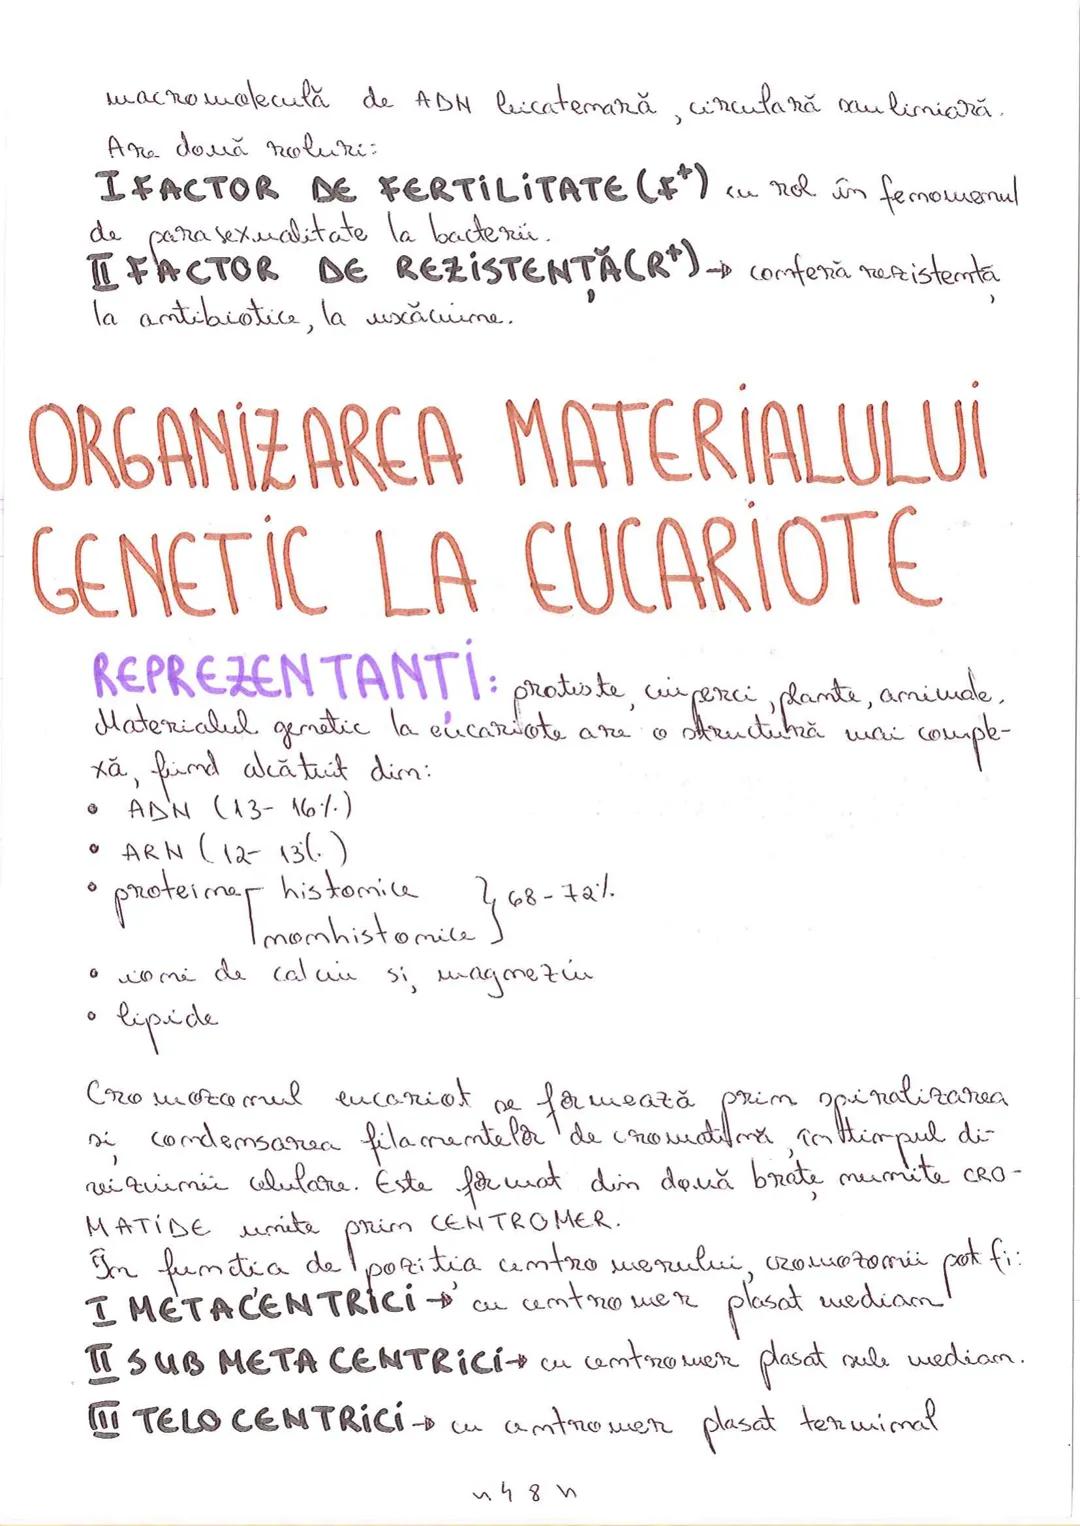 macromoleculă de ADN bicatenară, circulară sau liniară.
Are două roluri:
I FACTOR DE FERTILITATE (F⁺) cu rol în fenomenul
de parasexualitate la bacterii.
II FACTOR DE REZISTENȚĂ (R⁺) → conferă rezistență
la antibiotice, la uscăciune.
ORGANIZAREA MATERIALULUI
GENETIC LA EUCARIOTE
REPREZENTANTI: protiste, ciuperci, plante, animale.
Materialul genetic la eucariote are o structură mai comple-
xă, fiind alcătuit din:
• ADN (13-16%)
• ARN (12-13%)
• proteine histonice } 68-72%
nonhistonice
• ioni de calciu și magneziu
• lipide
Cromozomul eucariot se formează prin spiralizarea
și condensarea filamentelor de cromatină, în timpul di-
viziunii celulare. Este format din două brațe numite CRO-
MATIDE unite prin CENTROMER.
În funcția de poziția centromerului, cromozomii pot fi:
I METACENTRICI → cu centromer plasat median
II SUBMETACENTRICI → cu centromer plasat sub median.
III TELOCENTRICI → cu centromer plasat terminal
~48~